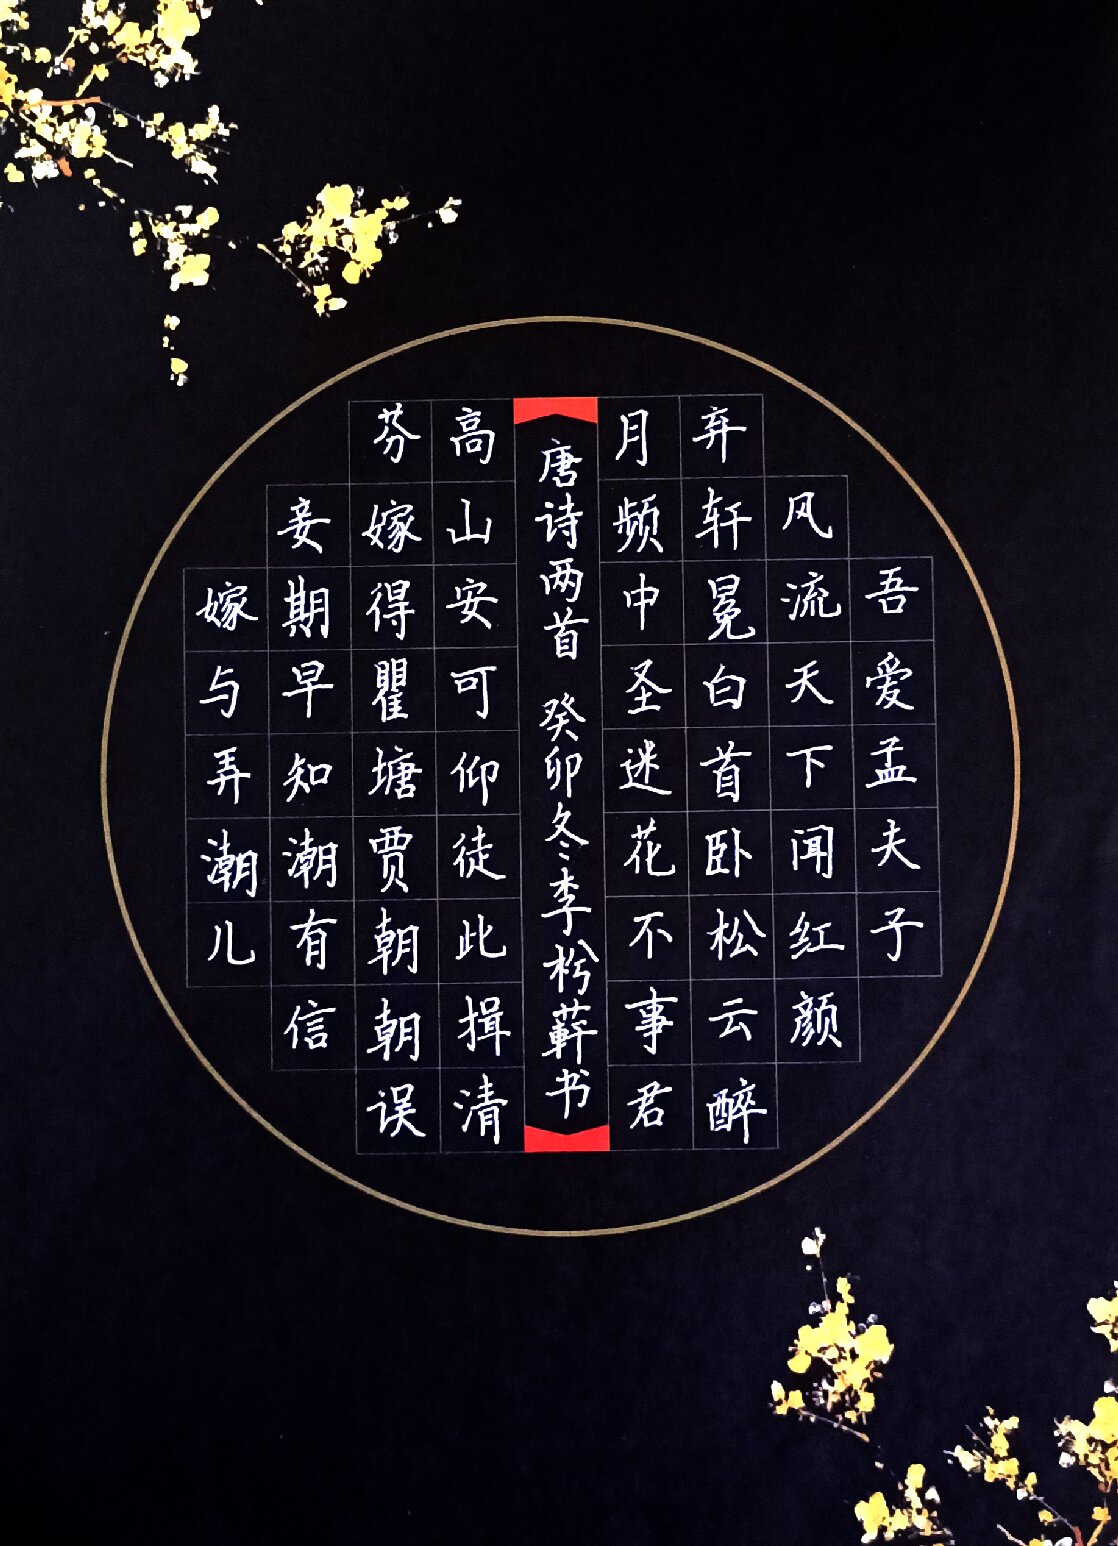 吾爱孟夫子
风流天下闻红颜
弃轩冕白首卧松云醉
月频中圣迷花不事君
唐诗两首 癸卯冬李枍蕲书
高山安可仰徒此揖清
芬嫁得瞿塘贾朝朝误
妾期早知潮有信
嫁与弄潮儿